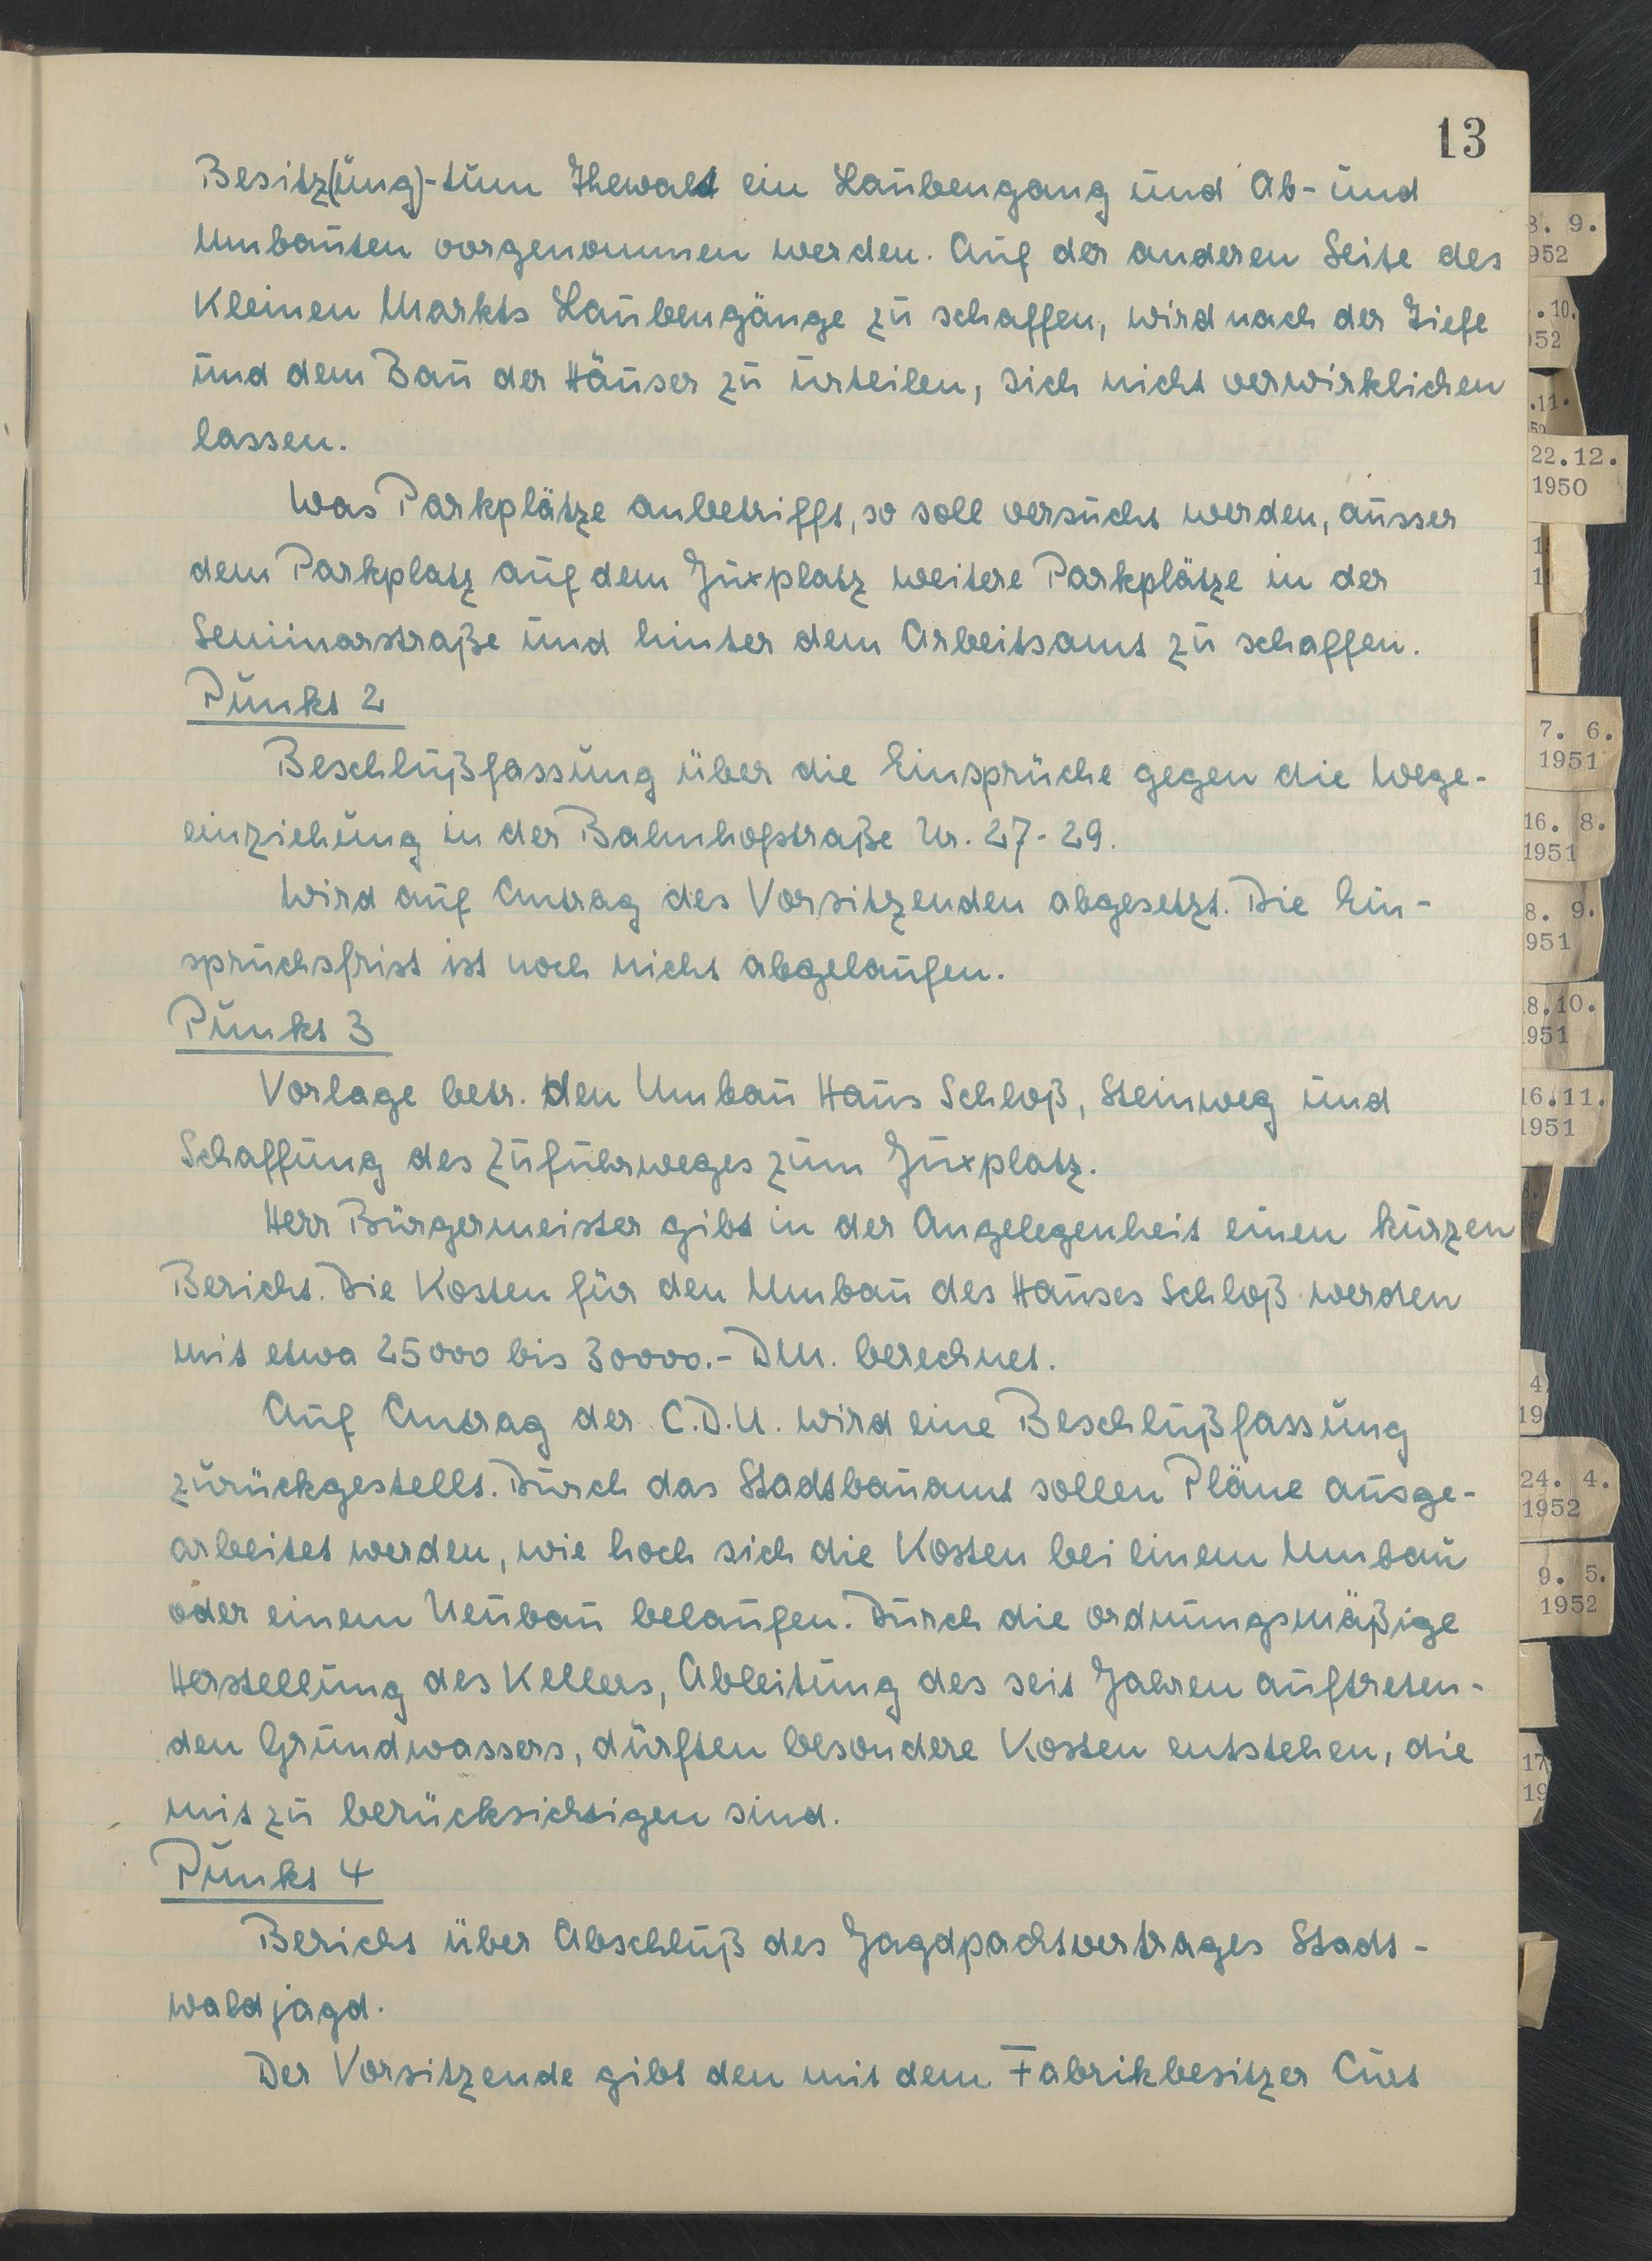 13
Besitz(ung)-tum Thewalt ein Laubengang und Ab- und
Umbauten vorgenommen werden. Auf der anderen Seite des
Kleinen Markts Laubengänge zu schaffen, wird nach der Tiefe
und dem Bau der Häuser zu urteilen, sich nicht verwirklichen
lassen.
Was Parkplätze anbetrifft, so soll versucht werden, ausser
dem Parkplatz auf dem Juxplatz weitere Parkplätze in der
Seminarstraße und hinter dem Arbeitsamt zu schaffen.
Punkt 2
Beschlußfassung über die Einsprüche gegen die Wege-
einziehung in der Bahnhofstraße Nr. 27-29.
Wird auf Antrag des Vorsitzenden abgesetzt. Die Ein-
spruchsfrist ist noch nicht abgelaufen.
Punkt 3
Vorlage betr. den Umbau Haus Schloß, Steinweg und
Schaffung des Zufuhrweges zum Juxplatz.
Herr Bürgermeister gibt in der Angelegenheit einen kurzen
Bericht. Die Kosten für den Umbau des Hauses Schloß werden
mit etwa 25000 bis 30000.- DM. berechnet.
Auf Antrag der C.D.U. wird eine Beschlußfassung
zurückgestellt. Durch das Stadtbauamt sollen Pläne ausge-
arbeitet werden, wie hoch sich die Kosten bei einem Umbau
oder einem Neubau belaufen. Durch die ordnungsmäßige
Herstellung des Kellers, Ableitung des seit Jahren auftreten-
den Grundwassers, dürften besondere Kosten entstehen, die
mit zu berücksichtigen sind.
Punkt 4
Bericht über Abschluß des Jagdpachtvertrages Stadt-
waldjagd.
Der Vorsitzende gibt den mit dem Fabrikbesitzer Curt
8. 9.
952
.10.
952
.11.
22.12.
1950
7. 6.
1951
16. 8.
1951
8. 9.
951
8.10.
1951
16.11.
1951
4
19
24. 4.
1952
9. 5.
1952
17
19